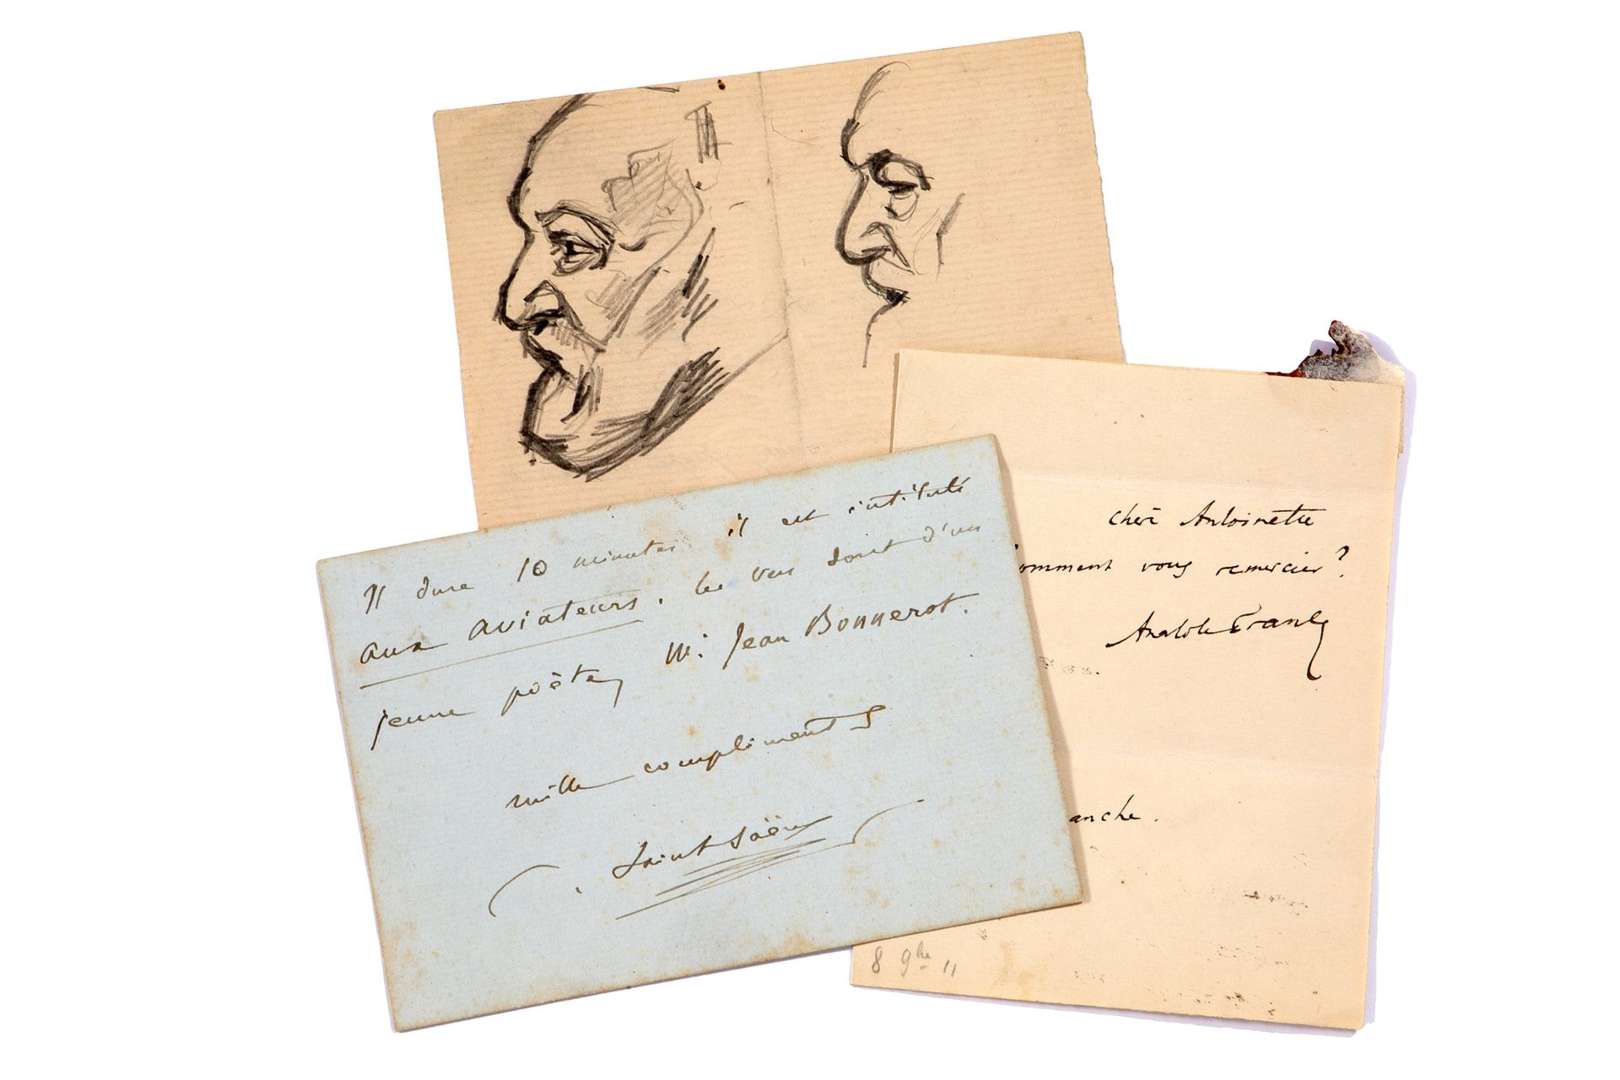 Il dure 10 minutes il est intitulé
aux aviateurs. les vers sont d'un
jeune poëte, Mr Jean Bonnerot.
mille compliments
C. Saint-Saëns
chère Antoinette
omment vous remercier?
Anatole France
anche.
8 9bre 11